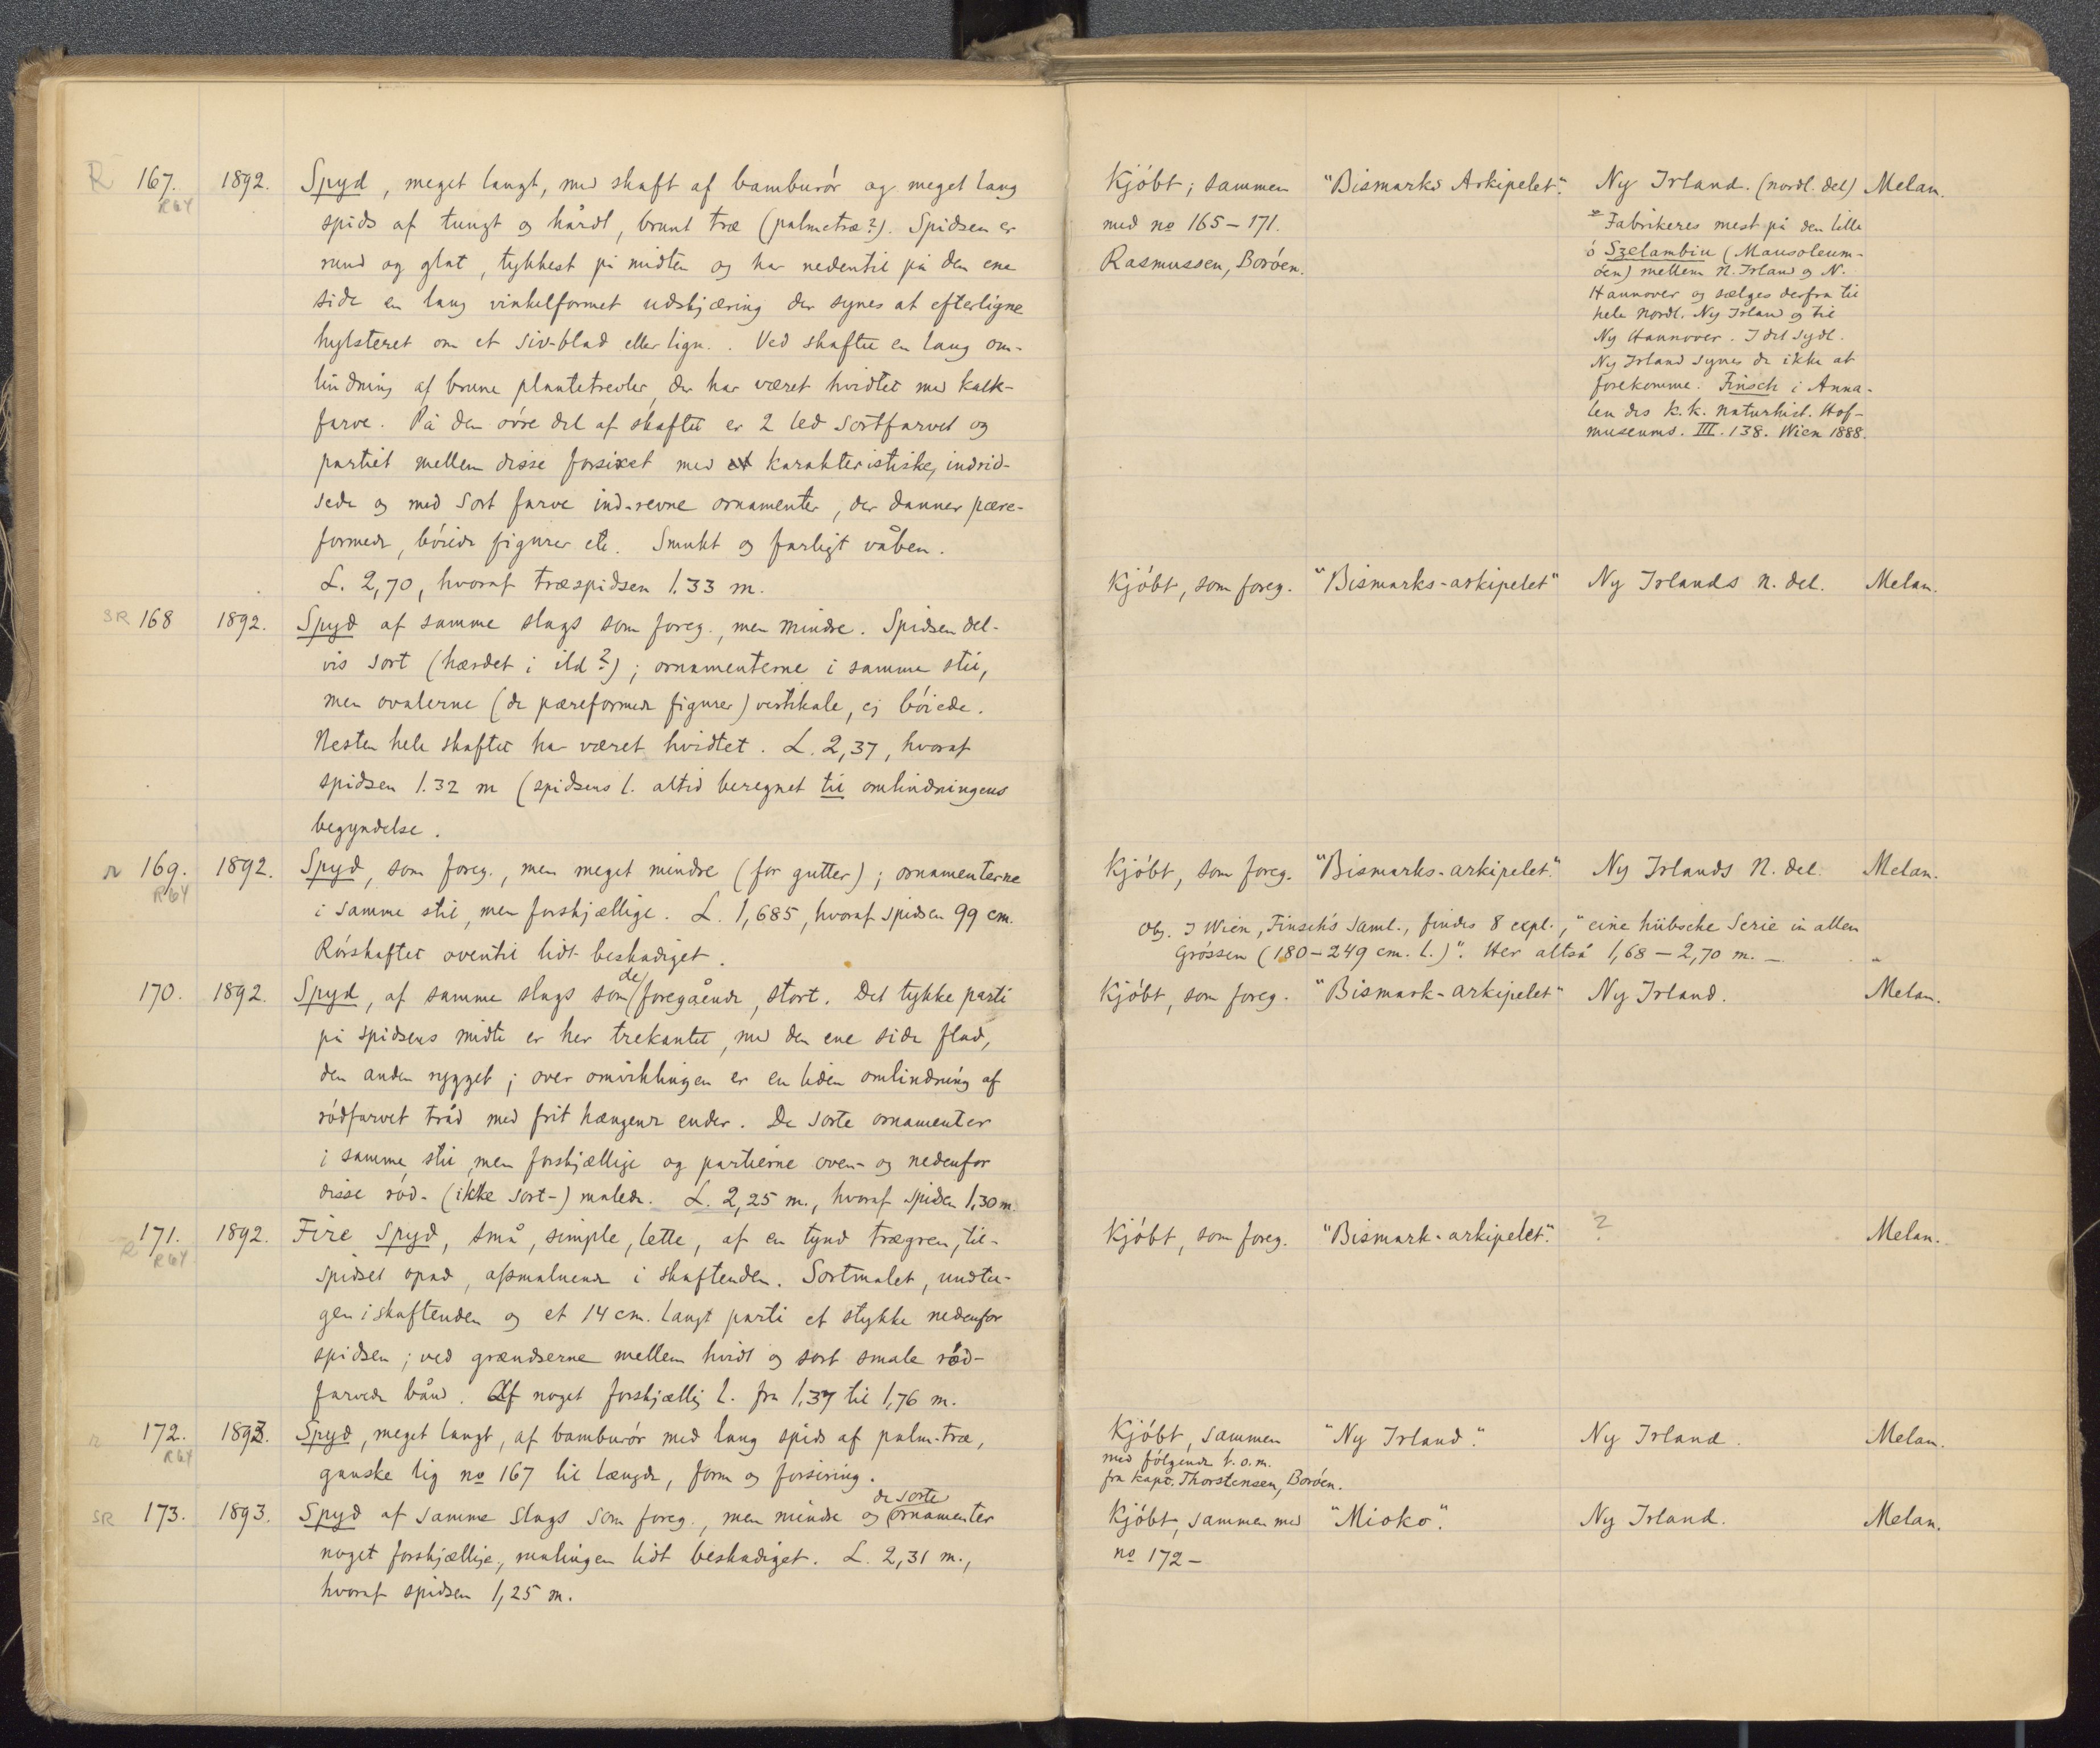 R 167. 1892. Spyd, meget langt, med skaft af bamburór og meget lang
R64
spids af tungt og hårdt, brunt træ (palmetræ?). Spidsen er
rund og glat, tykkest på midten og har nedentil på den ene
side en lang vinkelformet udskjæring der synes at efterligne
hylsteret om et siv-blad eller lign.. Ved skaftet en lang om-
lindning af brune plantetrevler, der har været hvidtet med kalk-
farve. På den óvre del af skaftet er 2 led sortfarvet og
partiet mellem disse forsiret med et karakteristiske, indrid-
sede og med sort farve ind-revne ornamenter, der danner pære-
formede, bóiede figurer etc. Smukt og farligt våben.
L. 2,70, hvoraf træspidsen 1.33 m.
SR 168 1892. Spyd af samme slags som foreg., men mindre. Spidsen del-
vis sort (hærdet i ild?); ornamenterne i samme stil,
men ovalerne (de pæreformede figurer) vertikale, ej bóiede.
Nesten hele skaftet har været hvidtet. L. 2,37, hvoraf
spidsen 1.32 m (spidsens l. altid beregnet til omlindningens
begyndelse.
R 169. 1892. Spyd, som foreg., men meget mindre (for gutter); ornamenterne
R64
i samme stil, men forskjællige. L. 1,685, hvoraf spidsen 99 cm.
Rórskaftet oventil lidt beskadiget.
170. 1892. Spyd, af samme slags som de foregående, stort. Det tykke parti
på spidsens midte er her trekantet, med den ene side flad,
den anden rygget; over omviklingen er en liden omlindning af
ródfarvet tråd med frit hængende ender. De sorte ornamenter
i samme stil, men forskjællige og partierne oven- og nedenfor
disse ród- (ikke sort-) malede. L. 2,25 m., hvoraf spidsen 1,30 m.
R 171. 1892. Fire Spyd, små, simple, lette, af en tynd trægren, til-
R64
spidset opad, afsmalnende i skaftenden. Sortmalet, undta-
gen i skaftenden og et 14 cm. langt parti et stykke nedenfor
spidsen; ved grændserne mellem hvidt og sort smale ród-
farvede bånd. Af noget forskjællig l. fra 1,37 til 1,76 m.
R 172. 1893. Spyd, meget langt, af bamburór med lang spids af palm-træ,
R64
ganske lig no 167 til længde, form og forsiring.
SR 173. 1893. Spyd af samme slags som foreg., men mindre og de sorte ornamenter
noget forskjællige, malingen lidt beskadiget. L. 2,31 m.,
hvoraf spidsen 1,25 m.
Kjóbt; sammen "Bismarks Arkipelet". Ny Irland. (nordl. del) Melan.
med no 165-171.
Rasmussen, Boróen.
Fabrikeres mest på den lille
ó Szelambiu (Mausoleum-
óen) mellem N. Irland og N.
Hannover og sælges derfra til
hele nordl. Ny Irland og til
Ny Hannover. I det sydl.
Ny Irland synes de ikke at
forekomme. Finsch i Anna-
len des k.k. naturhist. Hof-
museums. III. 138. Wien 1888.
Kjóbt, som foreg. "Bismarks-arkipelet" Ny Irlands n. del. Melan.
Kjóbt, som foreg. "Bismarks-arkipelet." Ny Irlands N. del. Melan.
Obs. I Wien, Finsch's saml., findes 8 expl., "eine hübsche Serie in allen
Gróssen (180-249 cm. l.)". Her altså 1,68-2,70 m. —
Kjóbt, som foreg. "Bismark-arkipelet" Ny Irland. Melan.
Kjóbt, som foreg. "Bismark-arkipelet". ? Melan.
Kjóbt, sammen "Ny Irland". Ny Irland. Melan.
med fólgende t.o.m.
fra kapt. Thorstensen, Boróen.
Kjóbt, sammen med "Mioko". Ny Irland. Melan.
no 172-